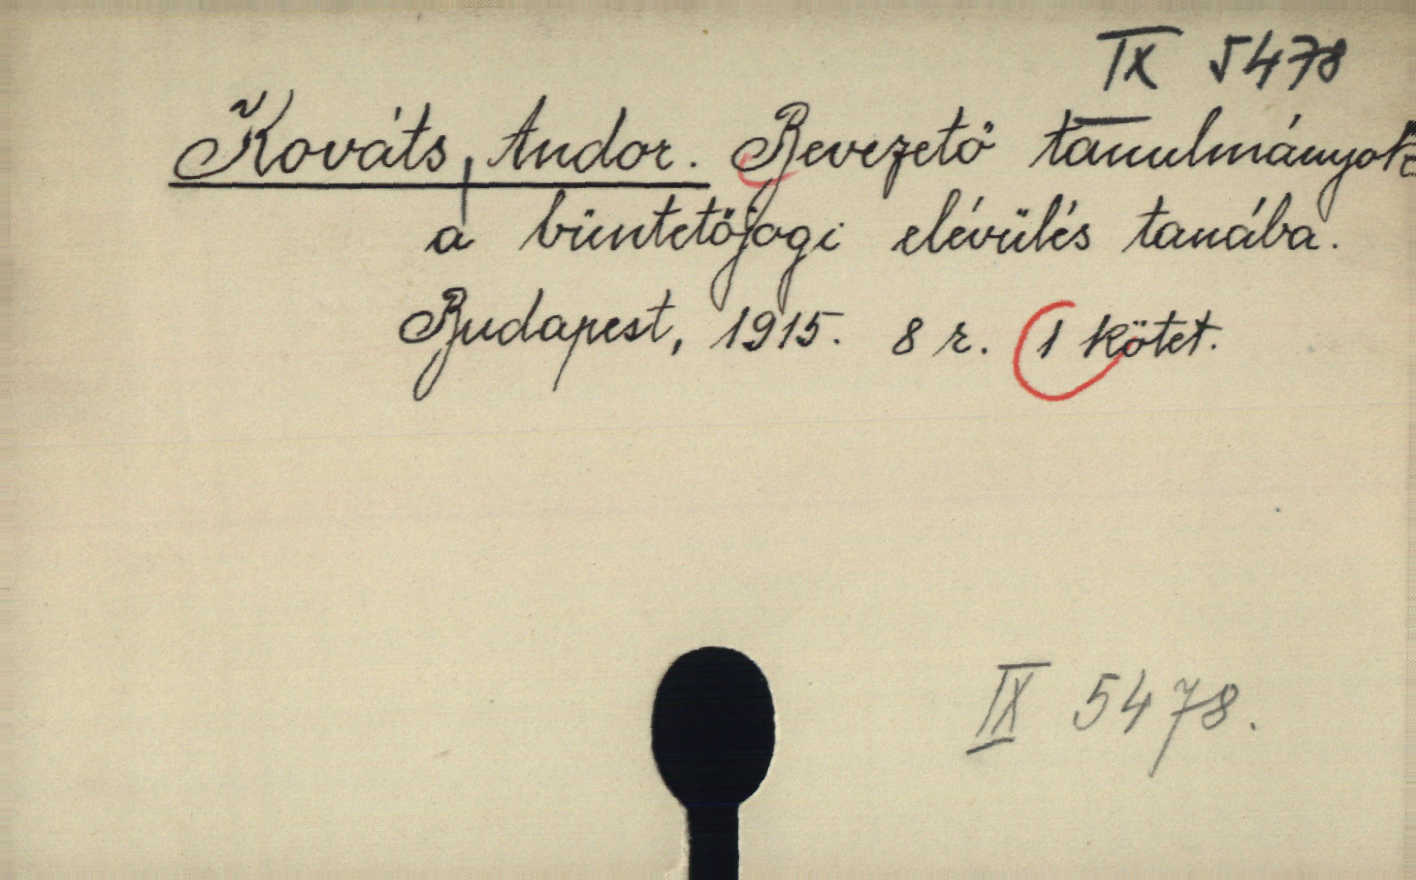 IX 5478
Kováts, Andor. Bevezető tanulmányok
a büntetőjogi elévülés tanába.
Budapest, 1915. 8 r. 1 kötet.
IX 5478.